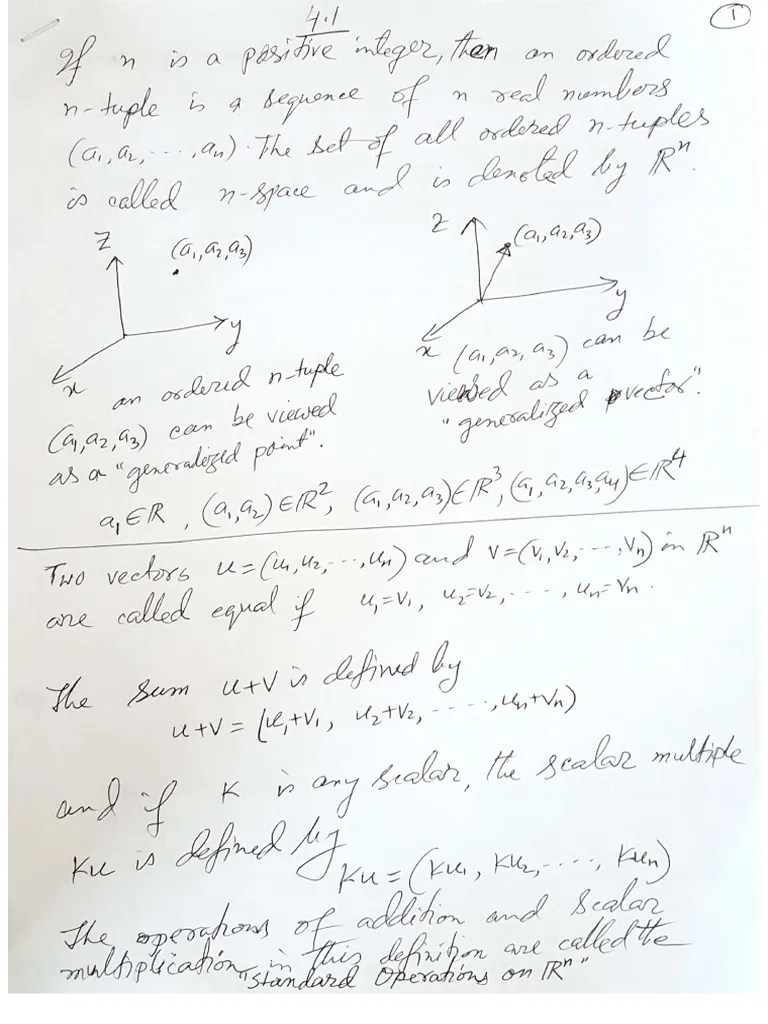 4.1
1
If n is a positive integer, then an ordered
n-tuple is a sequence of n real numbers
(a₁, a₂, ..., aₙ). The set of all ordered n-tuples
is called n-space and is denoted by ℝⁿ.
z
(a₁, a₂, a₃)
y
x
an ordered n-tuple
(a₁, a₂, a₃) can be viewed
as a "generalized point".
z
(a₁, a₂, a₃)
y
x
(a₁, a₂, a₃) can be
viewed as a
"generalized vector".
a₁ ∈ ℝ, (a₁, a₂) ∈ ℝ², (a₁, a₂, a₃) ∈ ℝ³, (a₁, a₂, a₃, a₄) ∈ ℝ⁴
Two vectors u = (u₁, u₂, ..., uₙ) and v = (v₁, v₂, ..., vₙ) in ℝⁿ
are called equal if u₁ = v₁, u₂ = v₂, ...., uₙ = vₙ.
The sum u+v is defined by
u+v = (u₁+v₁, u₂+v₂, ....., uₙ+vₙ)
and if K is any scalar, the scalar multiple
Ku is defined by
Ku = (Ku₁, Ku₂, ...., Kuₙ)
The operations of addition and scalar
multiplication in this definition are called the
"standard operations on ℝⁿ"